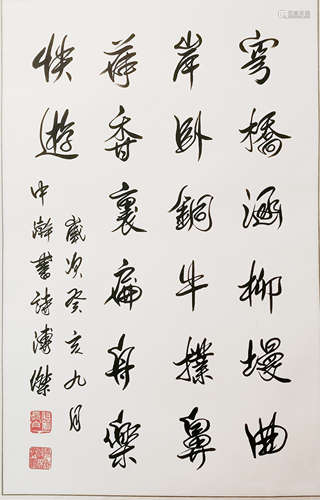 穹橋涵柳墁曲
岸臥銅牛撲鼻
荷香裏扁舟樂
快遊
歲次癸亥九月
中瀚書詩溥傑